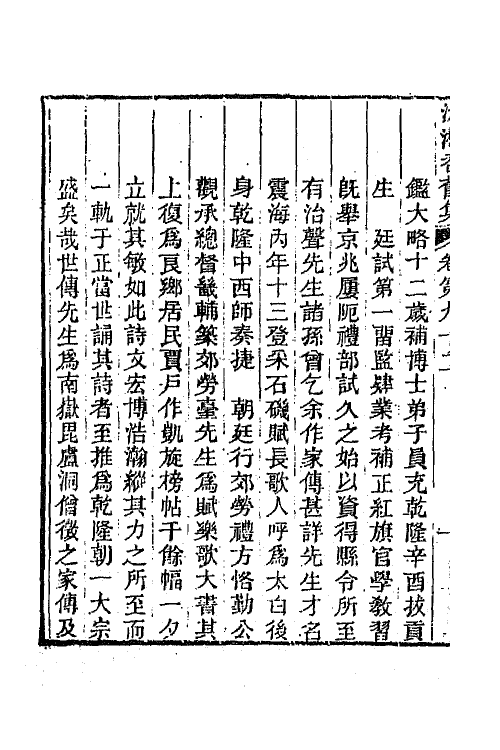 沅湘耆舊集 卷第九十二 一
鑑大略十二歲補博士弟子員充乾隆辛酉拔貢
生 廷試第一留監肄業考補正紅旗官學教習
旣舉京兆屢阨禮部試久之始以資得縣令所至
有治聲先生諸孫曾乞余作家傳甚詳先生才名
震海內年十三登采石磯賦長歌人呼爲太白後
身乾隆中西師奏捷 朝廷行郊勞禮方恪勤公
觀承總督畿輔築郊勞臺先生爲賦樂歌大書其
上復爲良鄉居民賈戶作凱旋榜帖千餘幅一夕
立就其敏如此詩文宏博浩瀚縱其力之所至而
一軌于正當世誦其詩者至推爲乾隆朝一大宗
盛矣哉世傳先生爲南嶽毘盧洞僧徵之家傳及